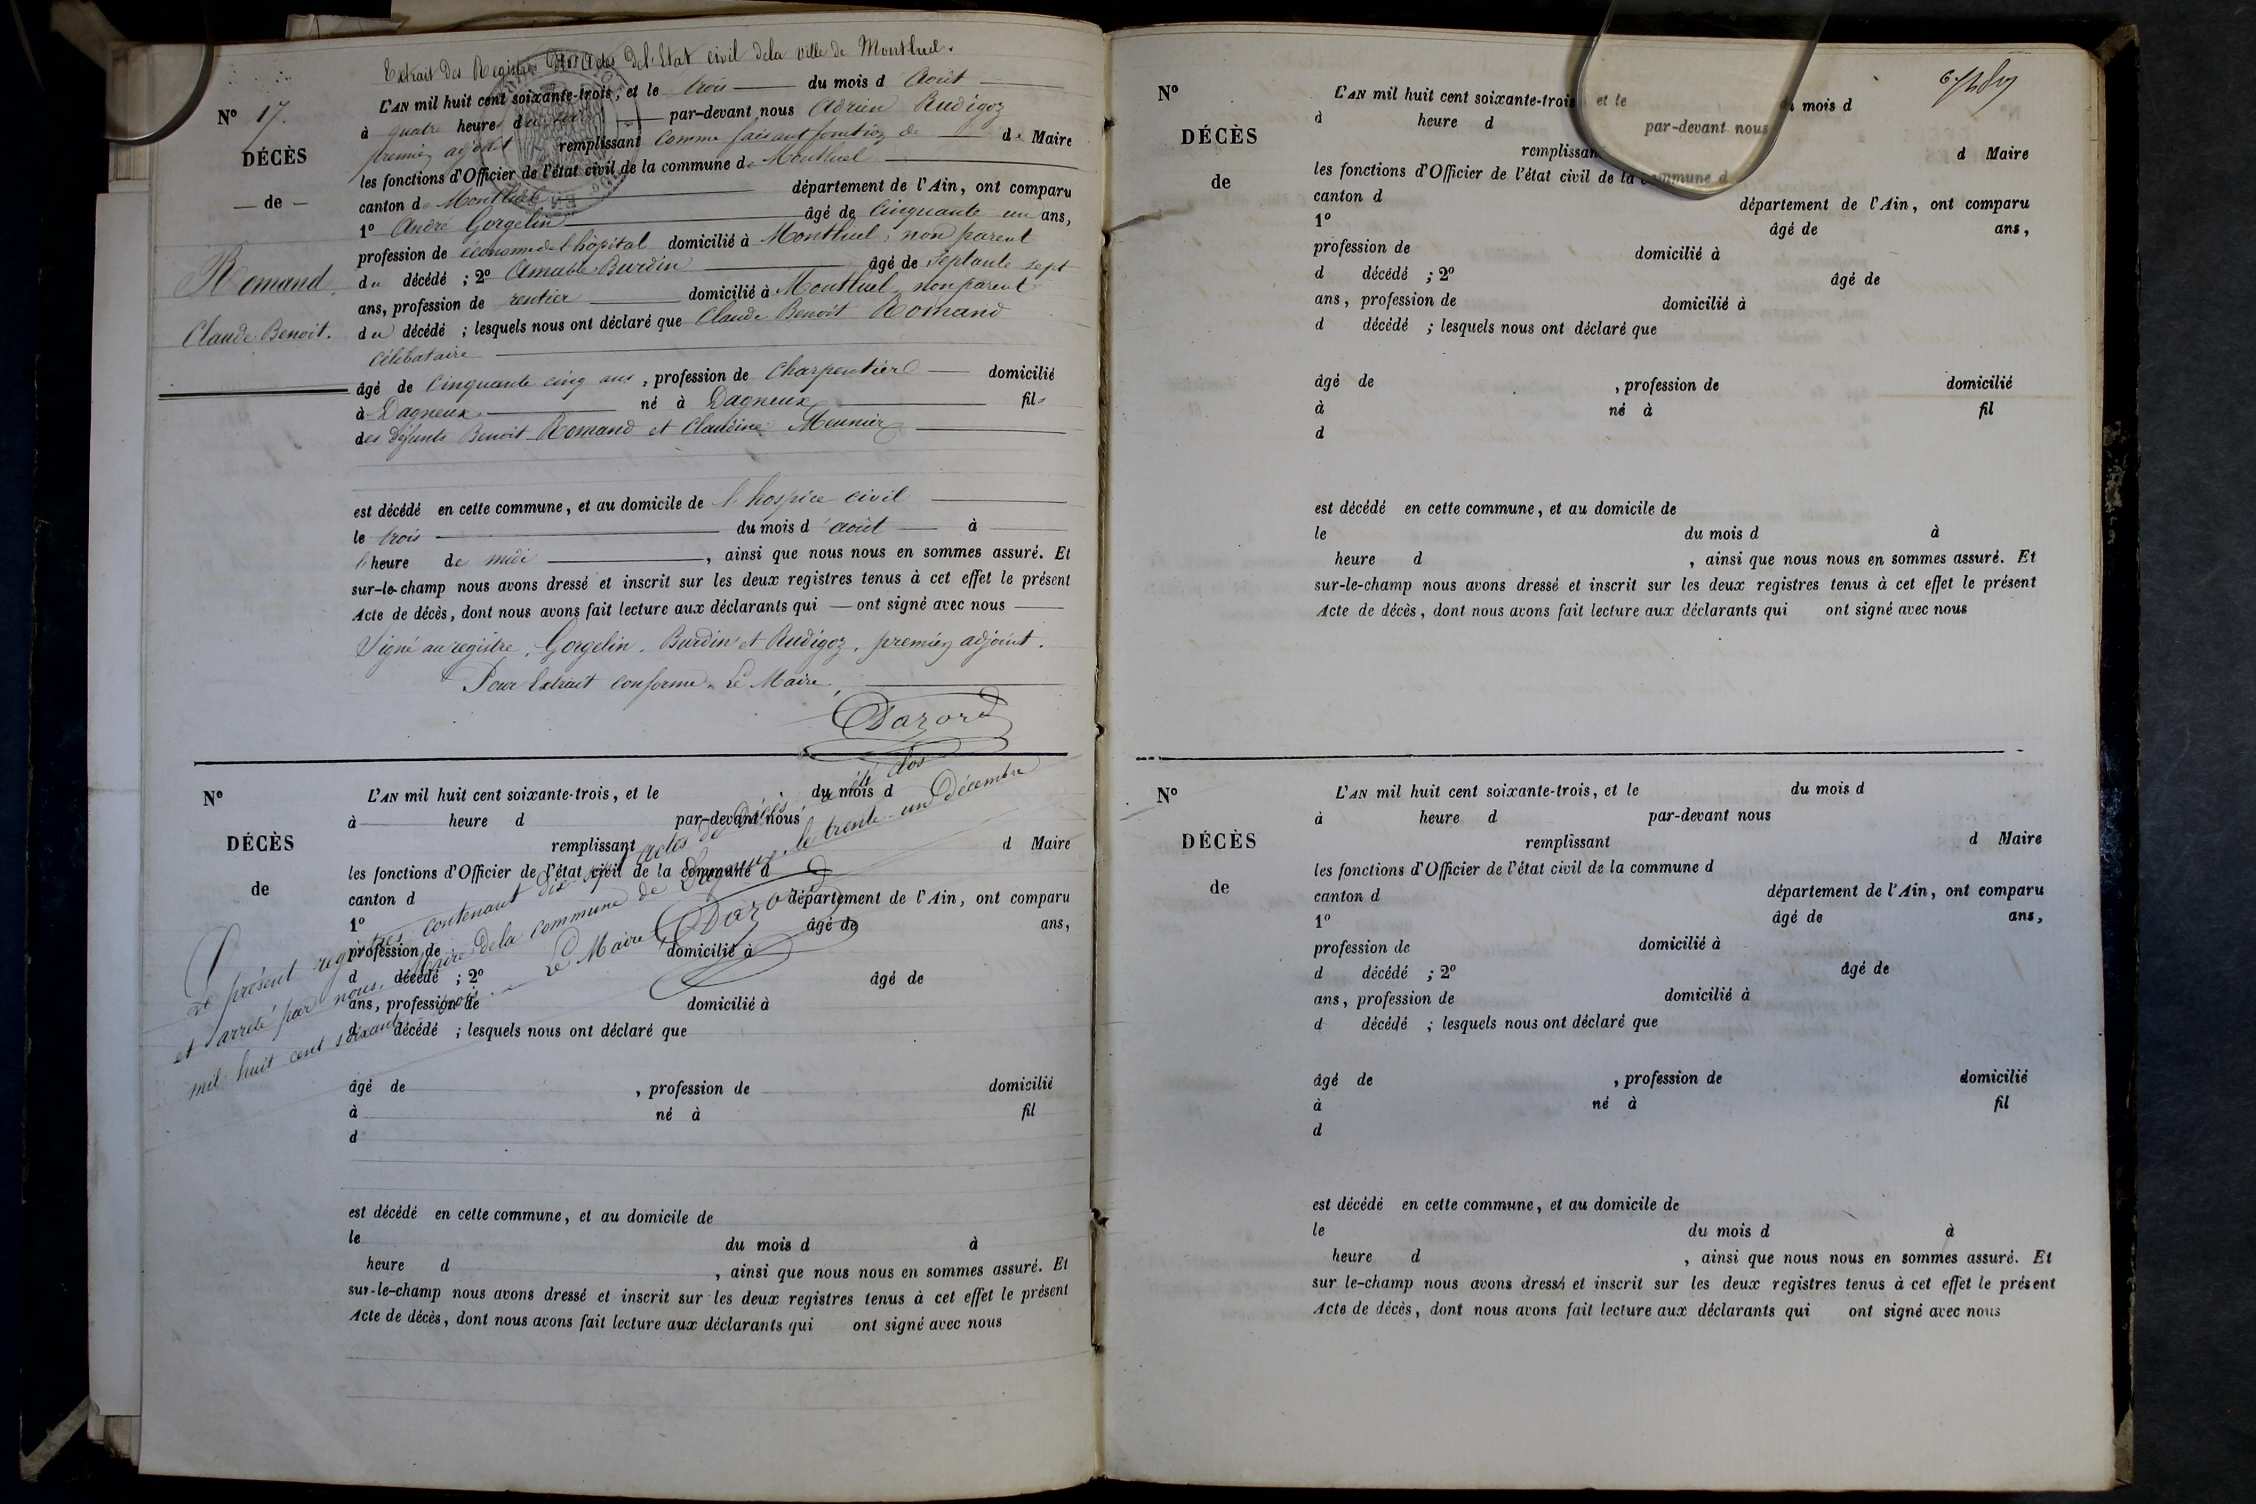 Extrait des Registres des Actes de l'Etat civil de la ville de Montluel.
N° 17.
DÉCÈS
— de —
Romand
Claude Benoit.
L'AN mil huit cent soixante-trois, et le trois du mois d Août
à quatre heures du soir par-devant nous Adrien Rudigoz
premier adjoint remplissant comme faisant fonction de de Maire
les fonctions d'Officier de l'état civil de la commune de Montluel
canton de Montluel département de l'Ain, ont comparu
1° André Gorgelin âgé de Cinquante un ans,
profession de économe de l'hôpital domicilié à Montluel, non parent
du décédé ; 2° Amable Burdin âgé de Septante sept
ans, profession de rentier domicilié à Montluel, non parent
du décédé ; lesquels nous ont déclaré que Claude Benoit Romand
célibataire
âgé de Cinquante cinq ans, profession de Charpentier domicilié
à Dagneux né à Dagneux fils
des défunts Benoit Romand et Claudine Meunier
est décédé en cette commune, et au domicile de l'hospice civil
le trois du mois d'août à
l'heure de midi , ainsi que nous nous en sommes assuré. Et
sur-le-champ nous avons dressé et inscrit sur les deux registres tenus à cet effet le présent
Acte de décès, dont nous avons fait lecture aux déclarants qui — ont signé avec nous
Signé au registre, Gorgelin, Burdin et Rudigoz, premier adjoint.
Pour Extrait conforme. Le Maire.
Dazord
N°
DÉCÈS
de
L'AN mil huit cent soixante-trois, et le du mois d
à heure d par-devant nous
remplissant d Maire
les fonctions d'Officier de l'état civil de la commune d
canton d département de l'Ain, ont comparu
1° âgé de ans,
profession de domicilié à
d décédé ; 2° âgé de
ans, profession de domicilié à
d décédé ; lesquels nous ont déclaré que
Le présent registres contenant dix sept actes de Décès a été clos
et arrêté par nous, Maire de la commune de Dagneux le trente-un Décembre
mil huit cent soixante trois. Le Maire Dazord
âgé de , profession de domicilié
à né à fil
d
est décédé en cette commune, et au domicile de
le du mois d à
heure d , ainsi que nous nous en sommes assuré. Et
sur-le-champ nous avons dressé et inscrit sur les deux registres tenus à cet effet le présent
Acte de décès, dont nous avons fait lecture aux déclarants qui ont signé avec nous
N°
DÉCÈS
de
L'AN mil huit cent soixante-trois et le du mois d
à heure d par-devant nous
remplissant d Maire
les fonctions d'Officier de l'état civil de la commune d
canton d département de l'Ain, ont comparu
1° âgé de ans,
profession de domicilié à
d décédé ; 2° âgé de
ans, profession de domicilié à
d décédé ; lesquels nous ont déclaré que
âgé de , profession de domicilié
à né à fil
d
est décédé en cette commune, et au domicile de
le du mois d à
heure d , ainsi que nous nous en sommes assuré. Et
sur-le-champ nous avons dressé et inscrit sur les deux registres tenus à cet effet le présent
Acte de décès, dont nous avons fait lecture aux déclarants qui ont signé avec nous
N°
DÉCÈS
de
L'AN mil huit cent soixante-trois, et le du mois d
à heure d par-devant nous
remplissant d Maire
les fonctions d'Officier de l'état civil de la commune d
canton d département de l'Ain, ont comparu
1° âgé de ans,
profession de domicilié à
d décédé ; 2° âgé de
ans, profession de domicilié à
d décédé ; lesquels nous ont déclaré que
âgé de , profession de domicilié
à né à fil
d
est décédé en cette commune, et au domicile de
le du mois d à
heure d , ainsi que nous nous en sommes assuré. Et
sur le-champ nous avons dressé et inscrit sur les deux registres tenus à cet effet le présent
Acte de décès, dont nous avons fait lecture aux déclarants qui ont signé avec nous